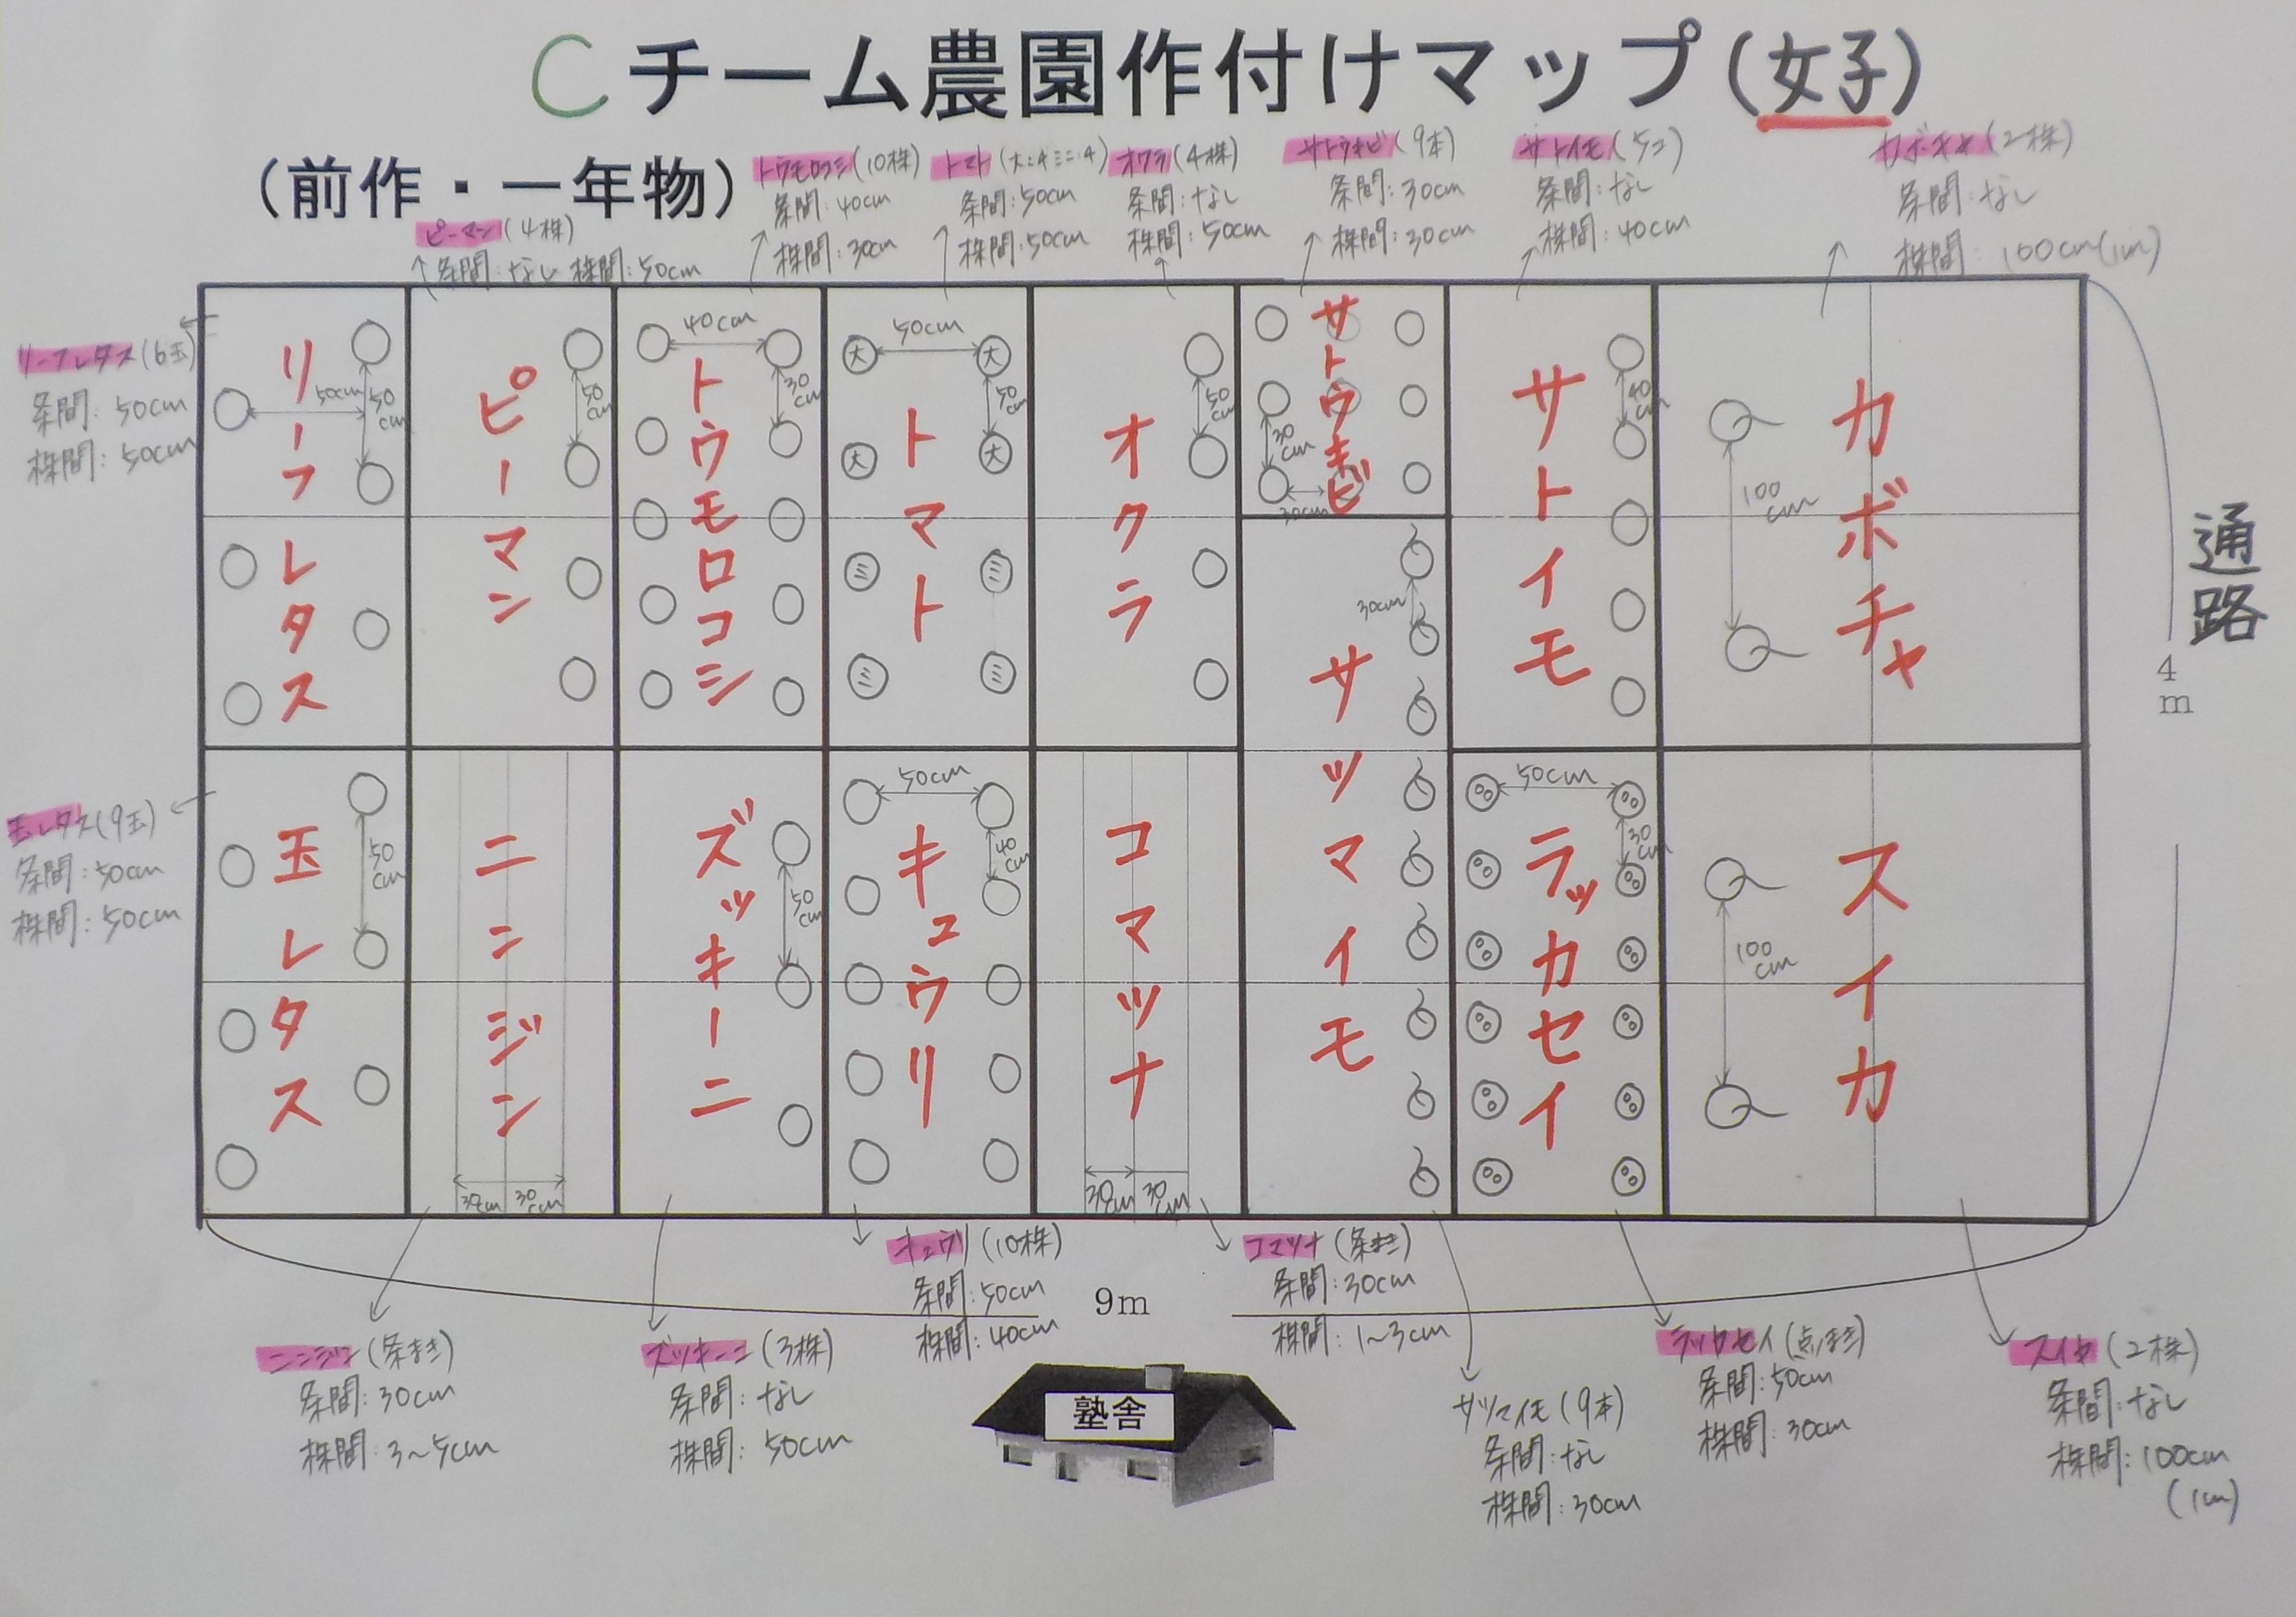 Cチーム農園作付けマップ(女子)
(前作・一年物)
ピーマン(4株)
条間:なし 株間:50cm
トウモロコシ(10株)
条間:40cm
株間:30cm
トマト(大:4 ミニ:4)
条間:50cm
株間:50cm
オクラ(4株)
条間:なし
株間:50cm
サトウキビ(9本)
条間:30cm
株間:30cm
サトイモ(5コ)
条間:なし
株間:40cm
カボチャ(2株)
条間:なし
株間:100cm(1m)
リーフレタス(6玉)
条間:50cm
株間:50cm
リーフレタス
50cm
50cm
ピーマン
50cm
トウモロコシ
40cm
30cm
トマト
50cm
50cm
大
大
大
大
ミ
ミ
ミ
ミ
オクラ
50cm
サトウキビ
30cm
30cm
サトイモ
40cm
カボチャ
100cm
通路
4m
玉レタス(9玉)
条間:50cm
株間:50cm
玉レタス
50cm
ニンジン
30cm
30cm
ズッキーニ
50cm
キュウリ
50cm
40cm
コマツナ
30cm
30cm
サツマイモ
30cm
ラッカセイ
50cm
30cm
スイカ
100cm
9m
ニンジン(条まき)
条間:30cm
株間:3~5cm
ズッキーニ(3株)
条間:なし
株間:50cm
キュウリ(10株)
条間:50cm
株間:40cm
コマツナ(条まき)
条間:30cm
株間:1~3cm
サツマイモ(9本)
条間:なし
株間:30cm
ラッカセイ(点まき)
条間:50cm
株間:30cm
スイカ(2株)
条間:なし
株間:100cm
(1m)
塾舎